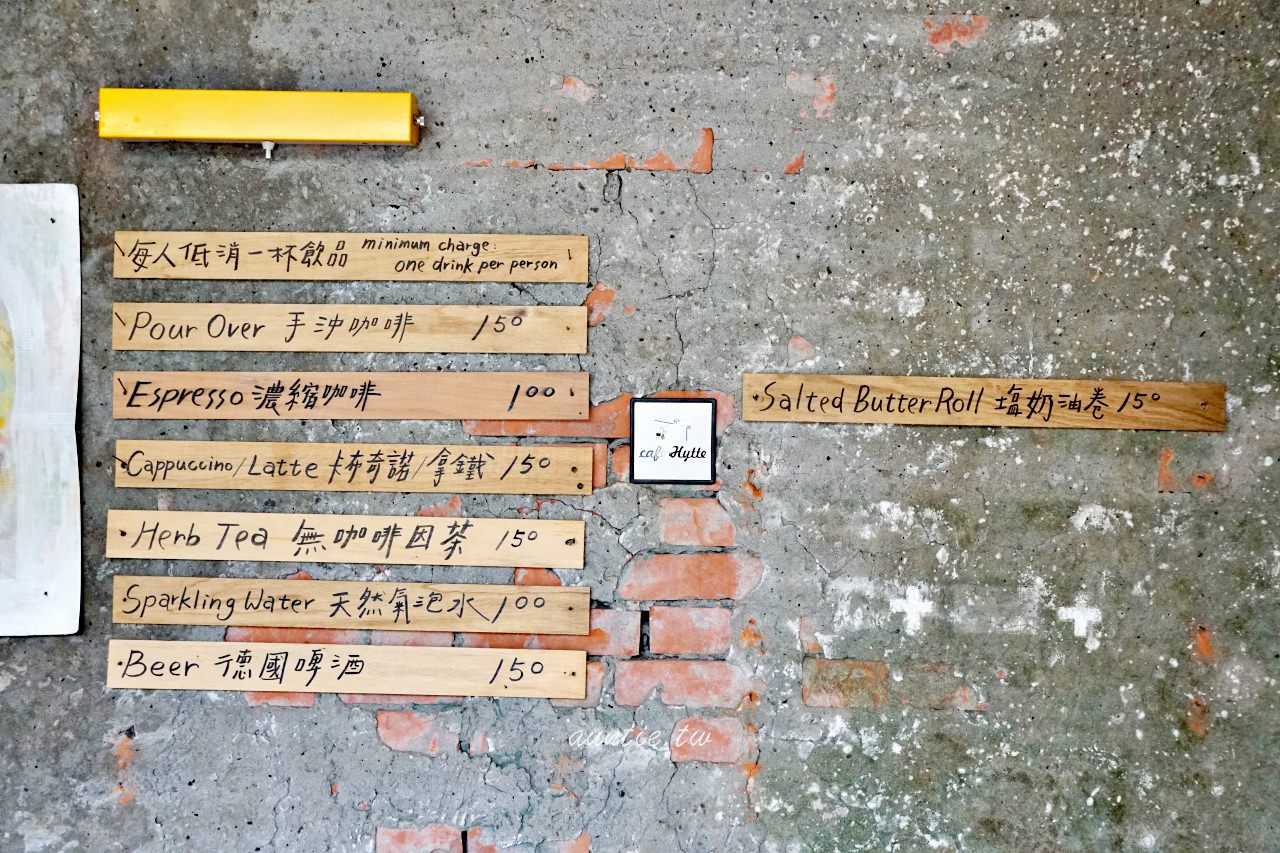 每人低消一杯飲品 minimum charge:
one drink per person
Pour Over 手沖咖啡 150
Espresso 濃縮咖啡 100
Cappuccino/Latte 卡布奇諾/拿鐵 150
Herb Tea 無咖啡因茶 150
Sparkling Water 天然氣泡水 100
Beer 德國啤酒 150
café Hytte
Salted Butter Roll 塩奶油卷 150
auntie_tw